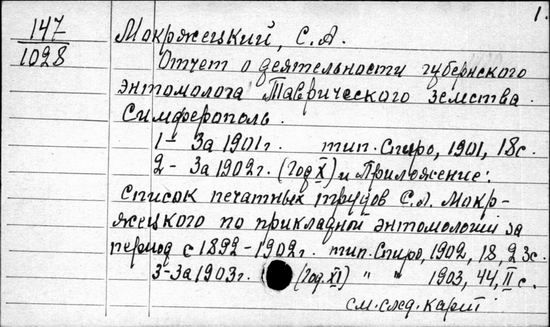 1.
147
1028
Мокржецкий, С.А.
Отчет о деятельности губернского
энтомолога Таврического земства.
Симферополь.
1- За 1901г. тип. Спиро, 1901, 18с.
2- За 1902г. (Год X) и Приложение:
список печатных трудов С.А. Мокр-
жецкого по прикладной энтомологии за
период с 1892-1902г. тип. Спиро, 1902, 18, 23с.
3-За 1903г. (Год. XI) " " 1903, 44, II с.
см. след. карт